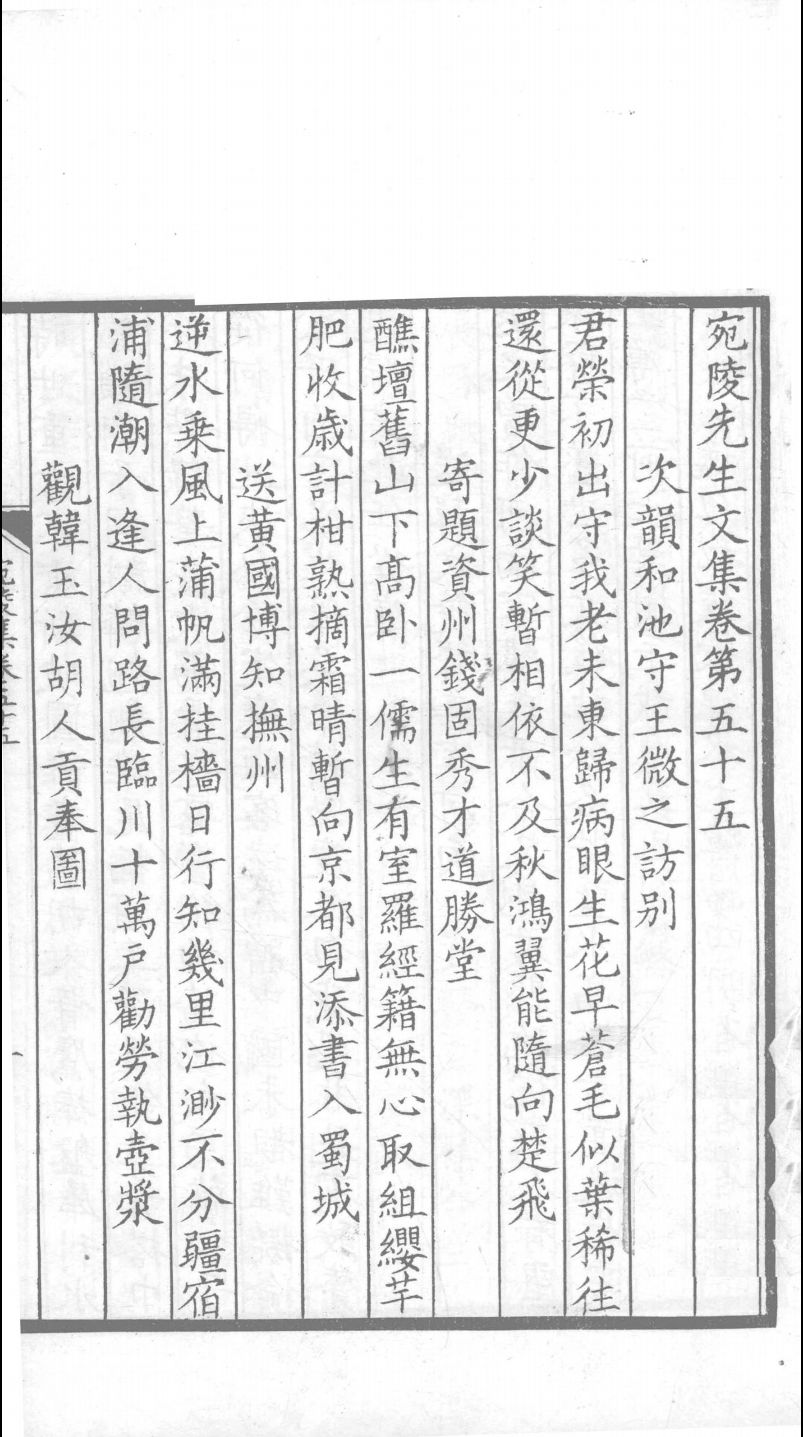 宛陵先生文集卷第五十五
次韻和池守王微之訪别
君榮初出守我老未東歸病眼生花早蒼毛似葉稀往
還從更少談笑暫相依不及秋鴻翼能隨向楚飛
寄題資州錢固秀才道勝堂
醮壇舊山下髙卧一儒生有室羅經籍無心取組纓芋
肥收歳計柑熟摘霜晴暫向京都見添書入蜀城
送黄國博知撫州
逆水乗風上蒲帆滿挂檣日行知幾里江渺不分疆宿
浦隨潮入逢人問路長臨川十萬户勸勞執壺漿
觀韓玉汝胡人貢奉圖
宛陵集卷五十五